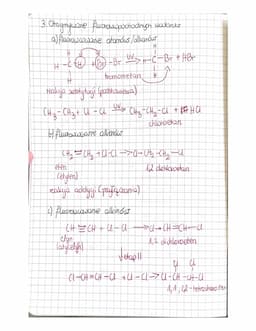 3. Otrzymywanie fluorowcopochodnych
a) fluorowcowanie alkanów/alkanów
H H
H-C-H + Br-Br UV→ H-C-Br + HBr
H H
bromometan
reakcja substytucji (podstawiania)
CH₃-CH₃ + Cl-Cl UV→ CH₃-CH₂-Cl + HCl
chloroetan
b) fluorowcowanie alkenów
CH₂=CH₂ + Cl-Cl → Cl-CH₂-CH₂-Cl
eten 1,2 dichloroetan
(etylen)
reakcja addycji (przyłączania)
c) fluorowcowanie alkinów
CH≡CH + Cl-Cl → Cl-CH=CH-Cl
etyn 1,2 dichloroeten
(acetylen)
↓ etap II
Cl Cl
Cl-CH=CH-Cl + Cl-Cl → Cl-CH-CH-Cl
1,1,2,2-tetrachloroetan